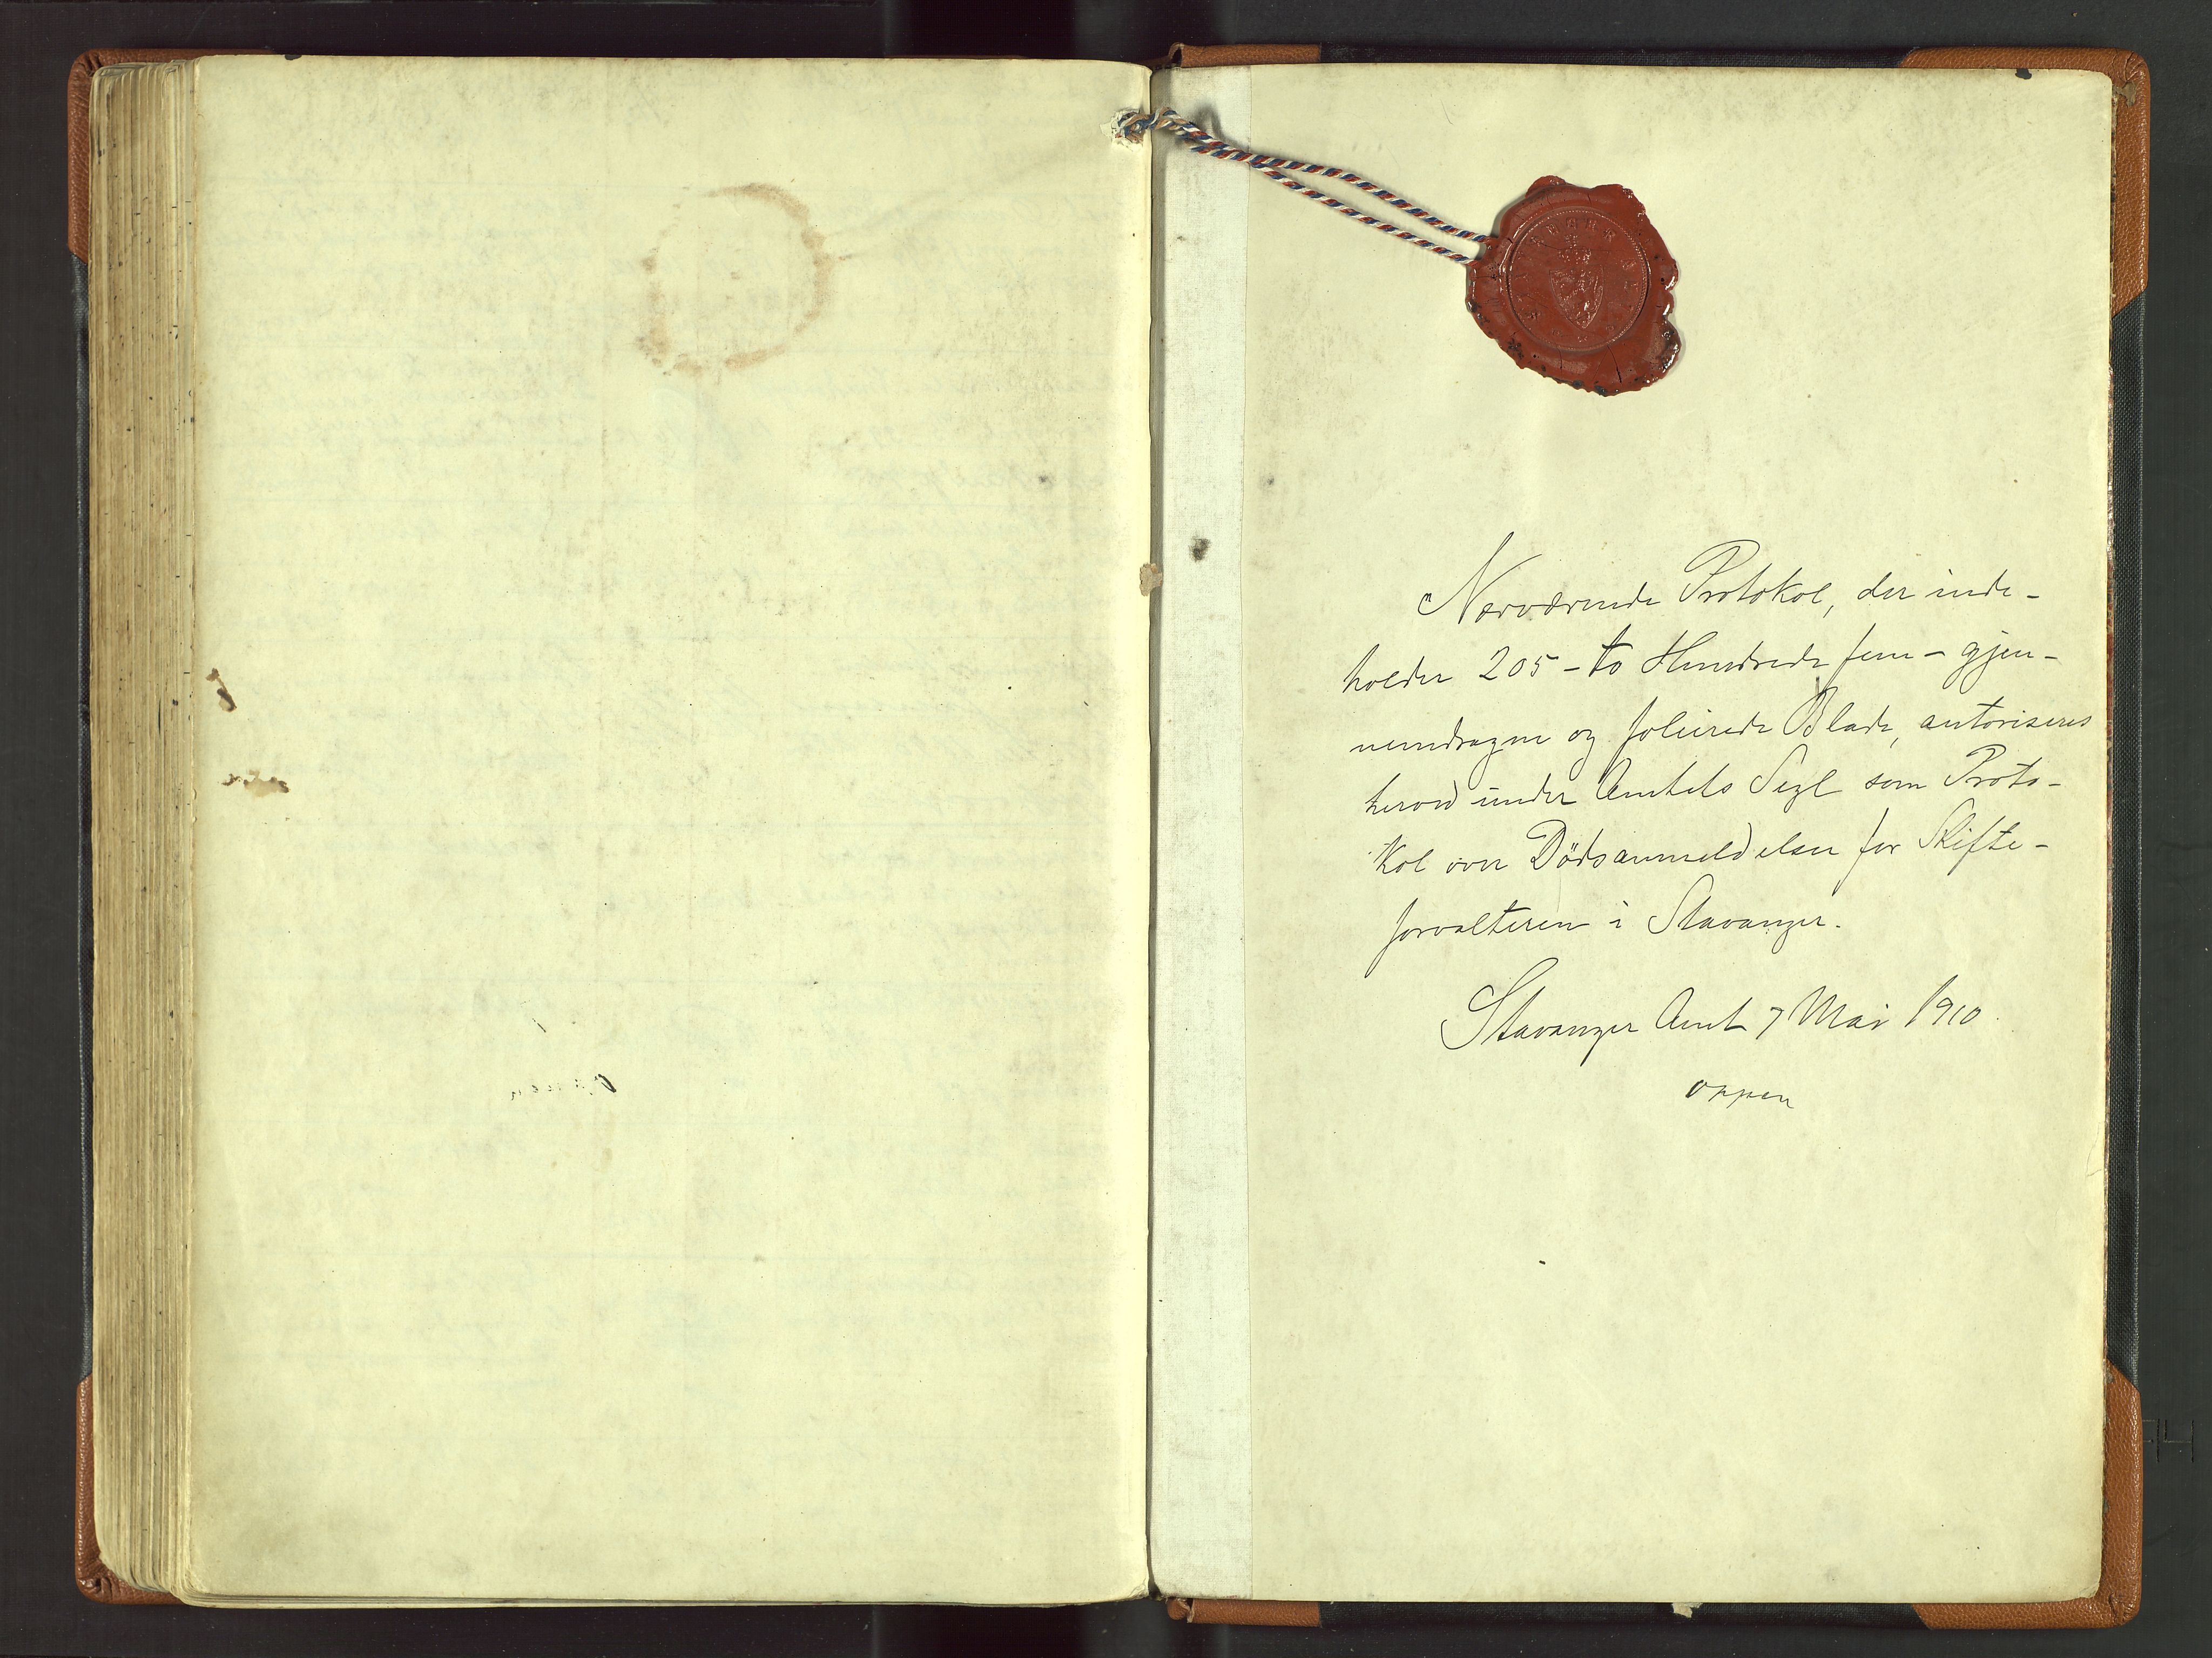 Nærværende Protokol, der inde-
holder 205 - to Hundrede fem - gjen-
nemdragne og folierede Blade, autoriseres
herved under Amtets Segl som Proto-
kol over Dödsanmeldelser for Skifte-
forvalteren i Stavanger.
Stavanger Amt 7 Mai 1910.
Oppen